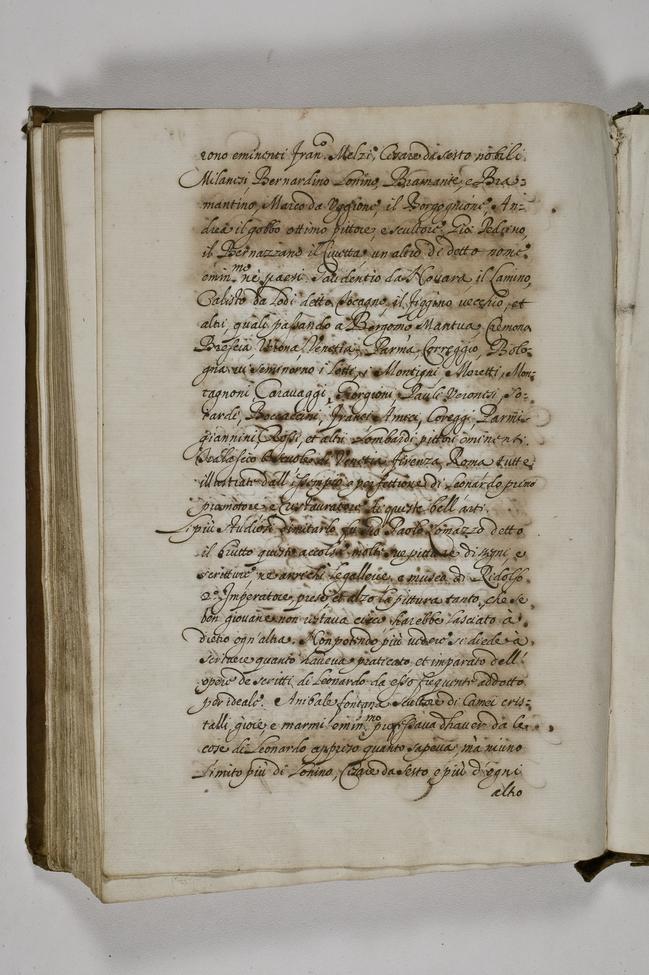 rono eminenti Fran.co Melzi, Cesare da Sesto nobili
Milanesi Bernardino Lovino, Bramante, e Bra=
mantino, Marco da Uggione, il Borgognone, An=
drea il gobbo ottimo pittore, e scultore, Gio: Pedrino,
il Bernazzano il Civetta un altro di detto nome
emin.mo ne paesi Gaudentio da Novara il Lanino,
Calisto da Lodi detto Cocagno, il Figgino vecchio, et
altri, quali passando a Bergomo Mantua Cremona
Brescia Verona Venetia, Parma, Correggio, Bolo=
gna vi seminorno i Lotti, i Montigni Moretti, Mon=
tagnoni Caravaggi, Giorgioni, Pauli Veronesi, So=
iardi, Boccaccini, Corregi, Parmi=
giannini Rossi, et altri Lombardi pittori eminenti.
le scuole di Venetia Firenza, Roma tutte
illustrate dall'essempio e perfettione di Leonardo primo
promotore e restauratore di queste bell'arti.
I più studiosi d'imitarlo fu Gio Paolo Lomazzo detto
il Brutto questi accolse molte sue pitture disegni e
scritture, ne arrichì le gallerie, e museo di Ridolfo
2.o Imperatore prese et alzo la pittura tanto, che se
ben giovane non restava cieco harebbe lasciato à
dietro ogn'altro. Non potendo più vedere si diede à
scrivere quanto haveva praticato, et imparato dell'
opere de scritti di Leonardo da esso sequente addotto
per ideale. Anibale fontana scultore di Camei cris=
talli gioie, e marmi emin.mo professava d'haver dà le
cose di Leonardo appreso quanto sapeva, mà niuno
l'imitò più di Lovino, Cesare da Sesto e più d'ogni
altro